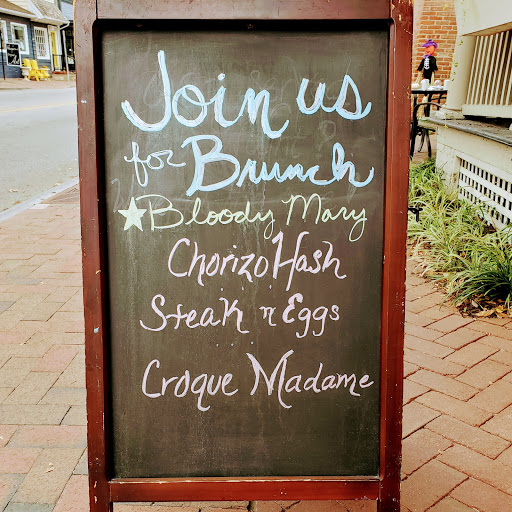 Join us
for Brunch
Bloody Mary
Chorizo Hash
Steak n Eggs
Croque Madame